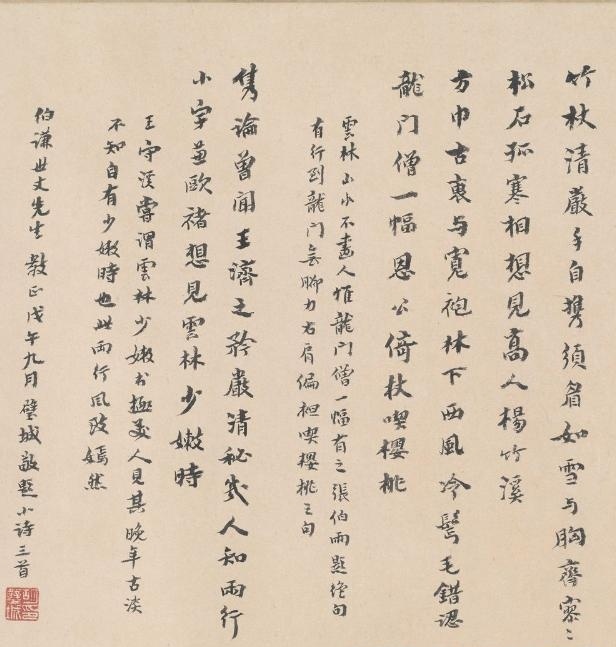 竹杖清嚴手自攜須眉如雪与胸齊寥〻
松石孤寒相想見高人楊竹溪
方巾古裹与寬袍林下西風冷鬢毛錯認
龍门僧一幅恩公倚杖喫櫻桃
雲林山水不畫人惟龍门僧一幅有之張伯雨題絕句
有行到龍门無腳力右肩偏袒喫櫻桃之句
雋論曾聞王濟之矜嚴清秘幾人知兩行
小字兼歐褚想見雲林少嫩時
王守溪嘗謂雲林少嫩書極美人見其晚年古淡
不知自有少嫩時也此兩行風致嫣然
伯謙世丈先生教正戊午九月璧城敬題小詩三首